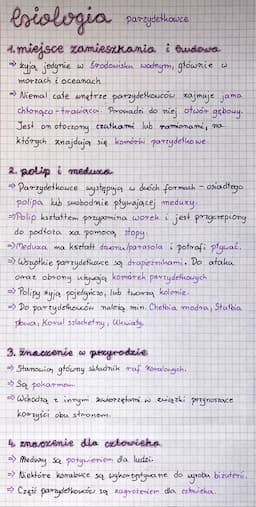 biologia parzydełkowce
1. miejsce zamieszkania i budowa
⇒ żyją jedynie w środowisku wodnym, głównie w
morzach i oceanach
⇒ Niemal całe wnętrze parzydełkowców zajmuje jama
chłonąco-trawiąca. Prowadzi do niej otwór gębowy.
Jest on otoczony czułkami lub ramionami, na
których znajdują się komórki parzydełkowe.
2. polip i meduza
⇒ Parzydełkowce występują w dwóch formach - osiadłego
polipa lub swobodnie pływającej meduzy.
⇒ Polip kształtem przypomina worek i jest przyczepiony
do podłoża za pomocą stopy.
⇒ Meduza ma kształt dzwonu/parasola i potrafi pływać.
⇒ Wszystkie parzydełkowce są drapieżnikami. Do ataku
oraz obrony używają komórek parzydełkowych
⇒ Polipy żyją pojedynczo, lub tworzą kolonie.
⇒ Do parzydełkowców należą min. Chełbia modra, Stułbia
płowa, Koral szlachetny, Ukwały.
3. znaczenie w przyrodzie
⇒ Stanowią główny składnik raf koralowych.
⇒ Są pokarmem
⇒ Wchodzą z innymi zwierzętami w związki przynoszące
korzyści obu stronom.
4. znaczenie dla człowieka
⇒ Meduzy są pożywieniem dla ludzi.
⇒ Niektóre koralowce są wykorzystywane do wyrobu biżuterii.
⇒ Część parzydełkowców są zagrożeniem dla człowieka.